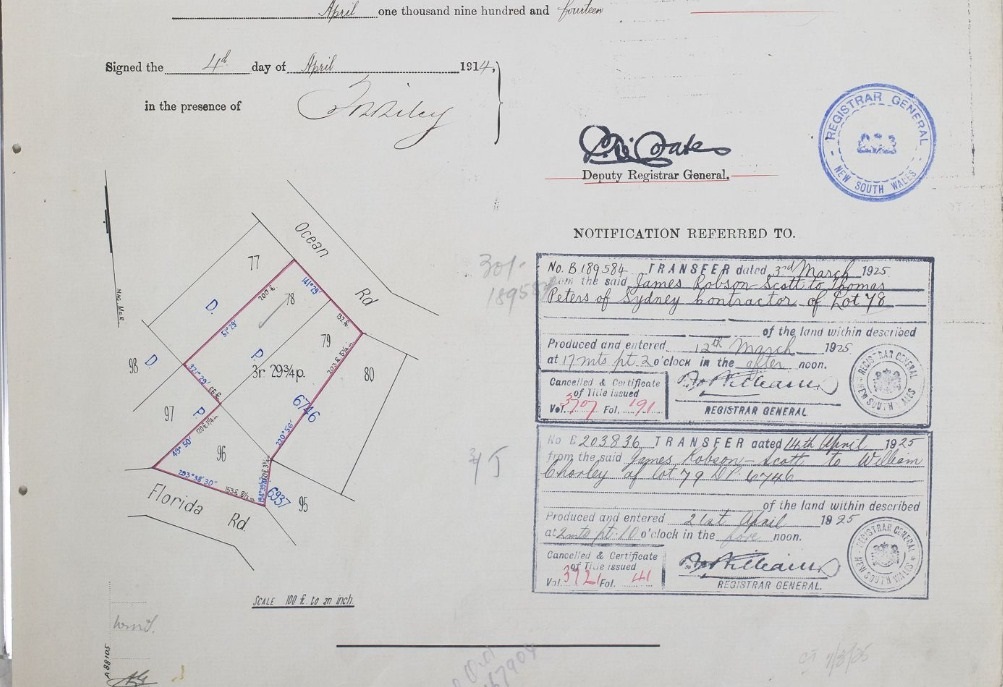 April one thousand nine hundred and fourteen
Signed the 4th day of April 1914,
in the presence of
Deputy Registrar General.
REGISTRAR GENERAL
NEW SOUTH WALES
NOTIFICATION REFERRED TO.
No. B189584 TRANSFER dated 3rd March 1925
from the said James Robson-Scott to Thomas
Peters of Sydney Contractor of Lot 78
of the land within described
Produced and entered 12th March 1925
at 17 mts pt 2 o'clock in the after noon.
Cancelled & Certificate
of Title issued
Vol. 3707 Fol. 191
REGISTRAR GENERAL
No B203836 TRANSFER dated 14th April 1925
from the said James Robson-Scott to William
Chorley of Lot 79 DP 6746
of the land within described
Produced and entered 21st April 1925
at 2 mts pt 10 o'clock in the fore noon.
Cancelled & Certificate
of Title issued
Vol. 3721 Fol. 41
REGISTRAR GENERAL.
Ocean Rd
77
78
79
80
98
97
96
95
D
D.
P.
P
3r 29¾p.
6746
6937
Florida Rd
SCALE 100 ft. to an inch.
A 88105